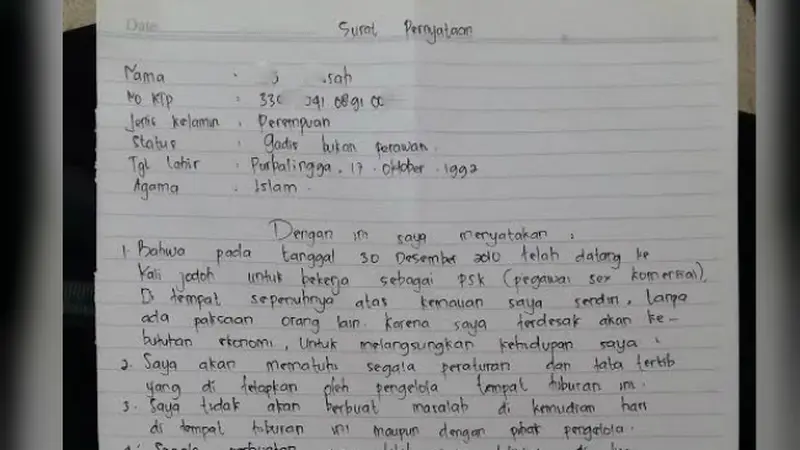 Date
Surat Pernyataan
Nama : sah
No KTP : 330 041 0891 00
Jenis kelamin : Perempuan
Status : gadis bukan perawan.
Tgl Lahir : Purbalingga, 17 Oktober 1992
Agama : Islam.
Dengan ini saya menyatakan :
1. Bahwa pada tanggal 30 Desember 2010 telah datang ke
Kali jodoh untuk bekerja sebagai PSK (pegawai sex komersial).
Di tempat sepenuhnya atas kemauan saya sendiri, tanpa
ada paksaan orang lain. Karena saya terdesak akan ke-
butuhan ekonomi, untuk melangsungkan kehidupan saya.
2. Saya akan mematuhi segala peraturan dan tata tertib
yang di tetapkan oleh pengelola tempat hiburan ini.
3. Saya tidak akan berbuat masalah di kemudian hari
di tempat hiburan ini maupun dengan pihak pengelola.
4. Segala